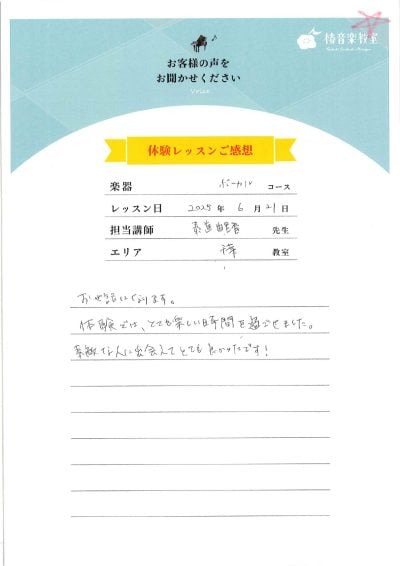 椿音楽教室
お客様の声を
お聞かせください
Voice
体験レッスンご感想
楽器 ボーカル コース
レッスン日 2025年 6月21日
担当講師 先生
エリア 教室
お世話になります。
体験では、とても楽しい時間を過ごせました。
素敵な人に出会えてとても良かったです!